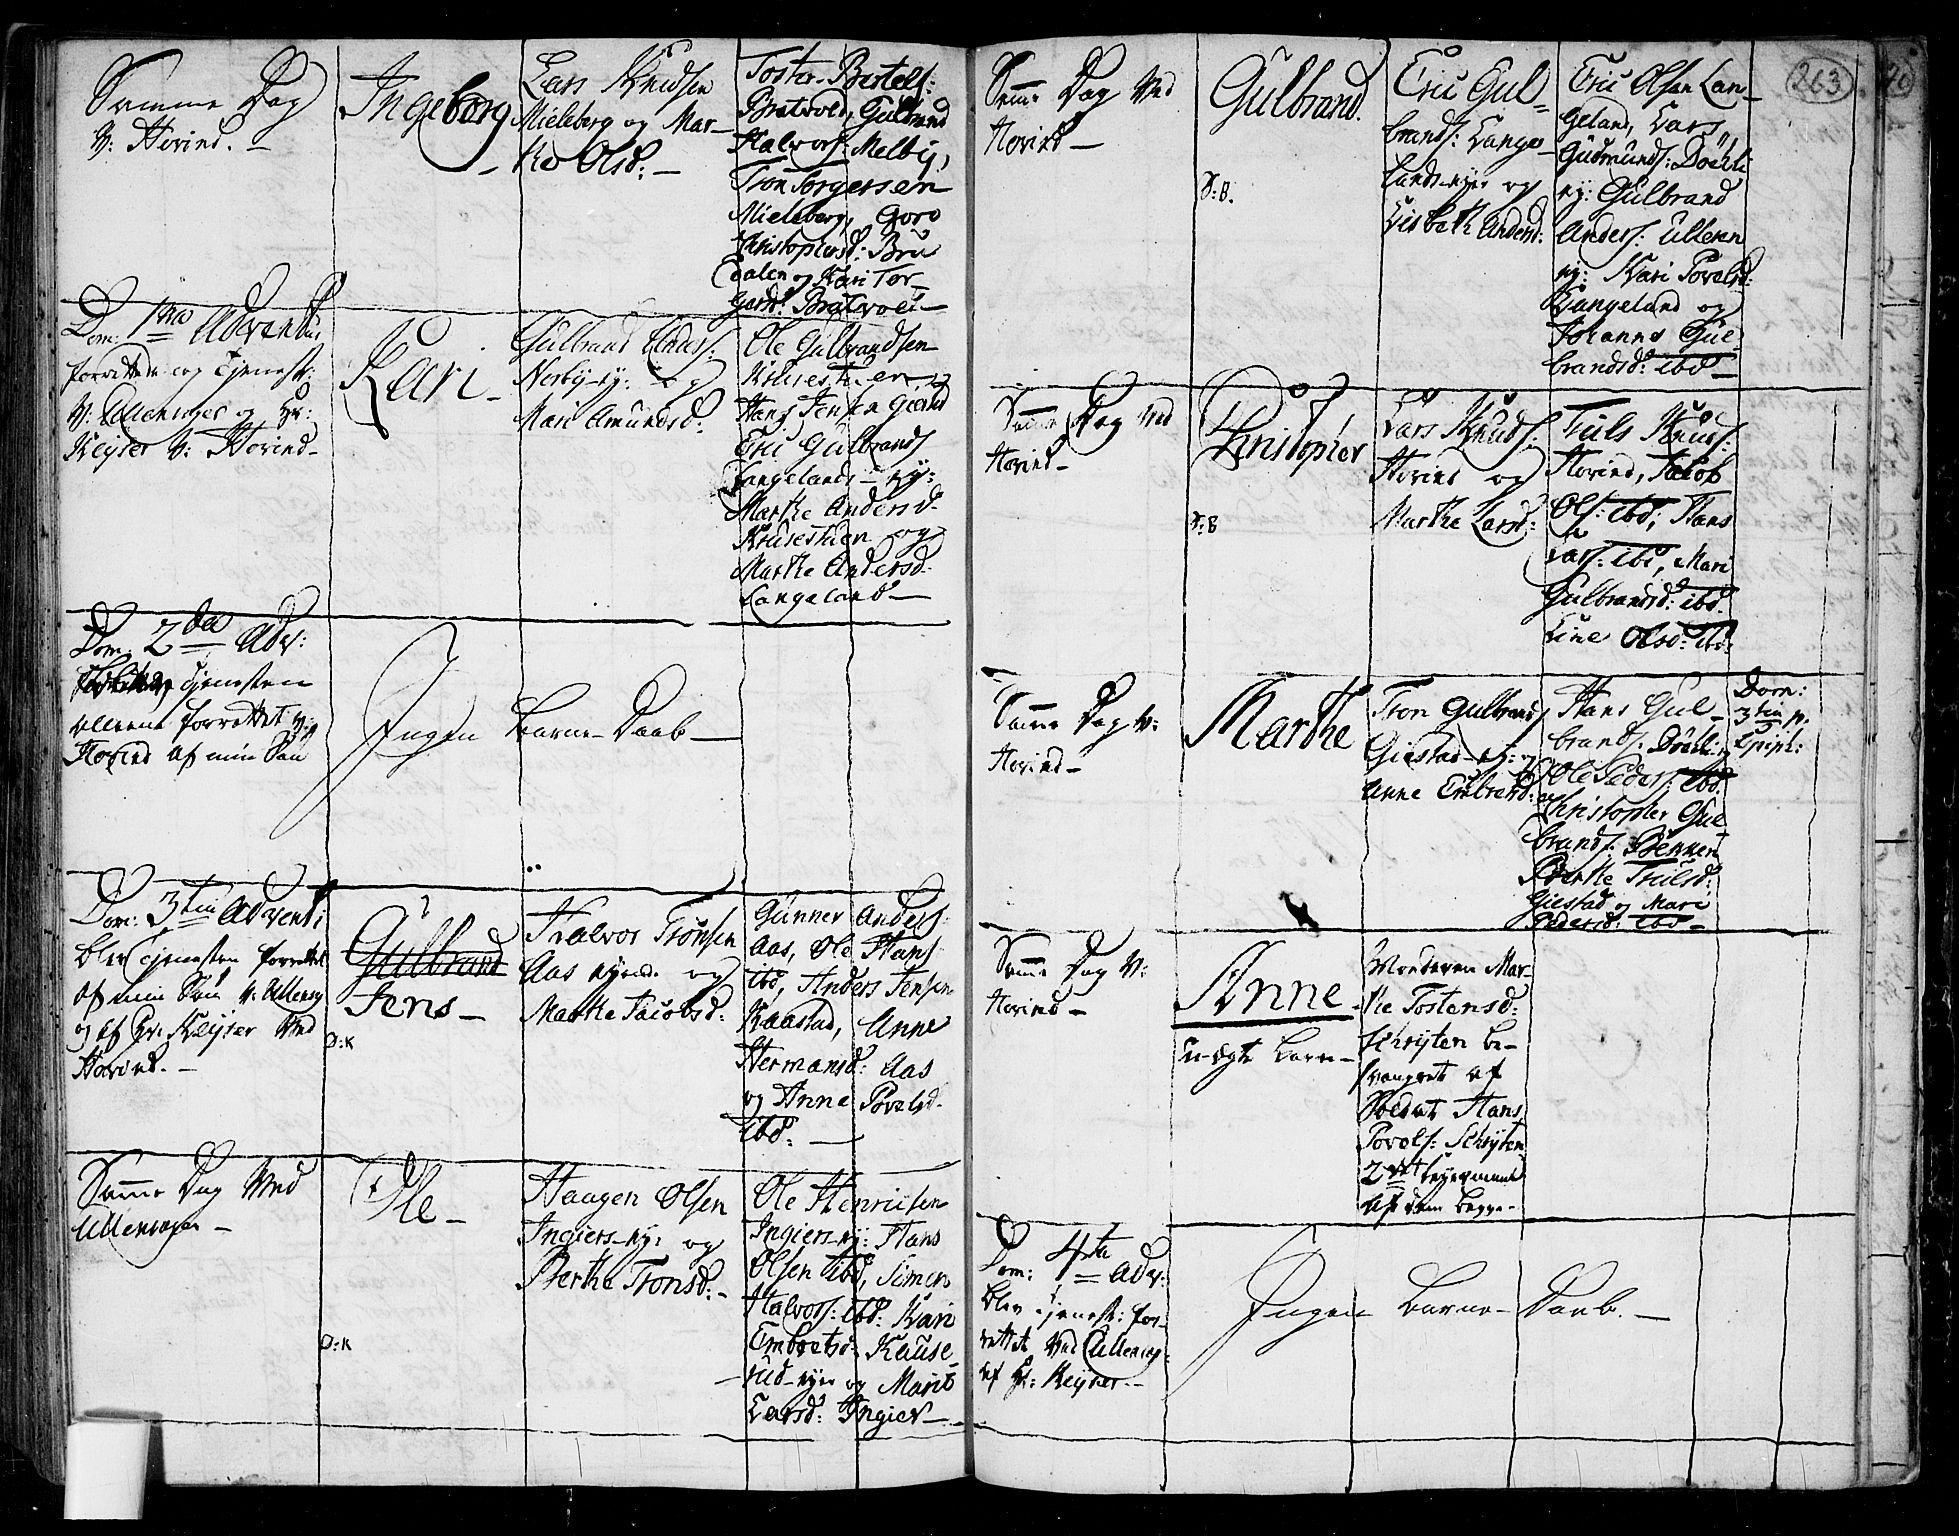 Samme Dag
v: Hovind. –
Ingeborg
Lars Knudsen
Mieleborg og Mar-
the Olsd: –
Tosten Bertels:
Bratvold, Gulbrand
Halvors: Melby,
Tron Torgersen
Mieleborg, Goro
Christophersd: Bru
dalen og Kari Tor-
gersd: Bratvold –
Dom: 1ma Adventus
forrettede og Tjenest:
v: Ullensager og Hr:
Keyser v: Hovind –
Kari –
Gulbrand Anders:
Norby-ey: – og
Mari Amundsd:
Ole Gulbrandsen
Kruestuen,
Hans Jensen Gjestad
Eric Gulbrands
Langelands-ey:
Marthe Andersd.
Kruestuen og
Marthe Andersd.
Langeland –
Dom. 2da Adv:
Tjenesten
alleene forrettet v:
Hovind af min Søn
Ingen Barne-Daab –
Dom: 3tia Adventi
blev Tjenesten forrettet
af min Søn v: Ullensag
og af Hr: Keyser ved
Hovind. –
Gulbrand
Jens –
D:K
Halvor Tronsen
Aas eyende og
Marthe Jacobsd:
Gunner Anders:
Aas, Ole Hans:
ibd, Anders Jensen
Kaastad, Anne
Hermansd: Aas
og Anne Povelsd.
ibd: –
Samme Dag ved
Ullensager –
Ole –
D:K
Haagen Olsen
Ingiers-ey: og
Berthe Tronsd: –
Ole Henrichsen
Ingiers-ey: Hans
Olsen ibd, Simen
Halvors: ibd: Kari
Embretsd: Kause-
rud-eyer og Marit
Larsd: Ingier –
263
Samme Dag ved
Hovind –
Gulbrand.
S:B.
Eric Gul-
brands: Lange-
lands-eyer og
Lisbeth Andersd:
Eric Olsen Lan-
geland, Lars
Gudmunds: Døhli
ey: Gulbrand
Anders: Ulleren
ey: Kari Povelsd:
Langeland og
Johanne Gul-
brandsd: ibd –
Samme Dag ved
Hovind –
Christopher
S:B
Lars Knuds:
Hovind og
Marthe Larsd:
Truls Knuds:
Hovind, Jacob
Ols: ibd, Hans
Lars: ibd, Mari
Gulbrandsd: ibd.
Line Olsd: ibd:
Samme Dag v:
Hovind –
Marthe
Tron Gulbrands
Giestad-ey: og
Anne Embretsd:
Hans Gul-
brands: Døhli:
Ole Peders: ibd.
Christopher Gul
brands: Bekken
Berthe Trulsd:
Giestad og Mari
Pedersd: ibd –
Dom:
3tia p.
Epiph:
Samme Dag v:
Hovind –
Anne –
u-ægte Barn –
Moderen Mar-
the Tostensd:
Schrijten be-
svangret af
Soldat Hans
Povels: Schrijten
2det leyermaal
af dem begge –
Dom: 4ta Adv:
blev Tjenest: for-
rettet ved Ullensag:
af Hr: Keyser. –
Ingen Barne-Daab. –